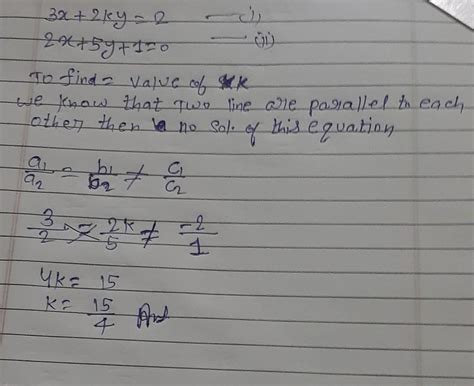 3x + 2ky = 2 — (i)
2x + 5y + 1 = 0 — (ii)
To find = value of k
we know that Two line are parallel to each
other then no sol. of this equation
a₁/a₂ = b₁/b₂ ≠ c₁/c₂
3/2 = 2k/5 ≠ -2/1
4k = 15
k = 15/4 Ans